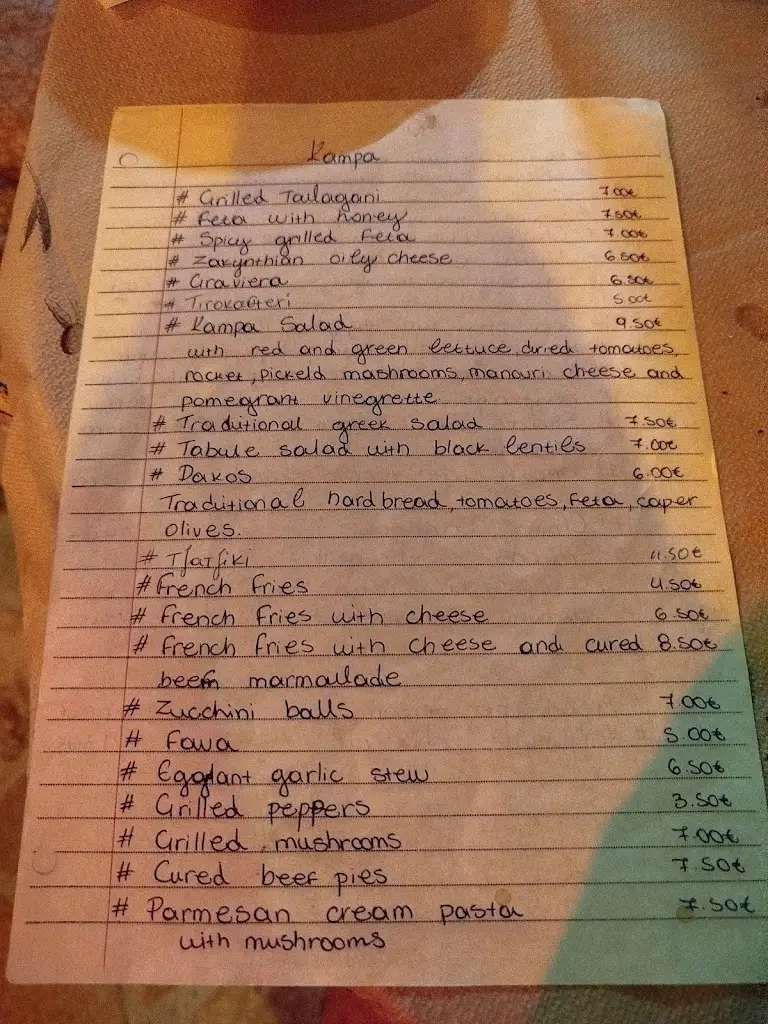 Kampa
# Grilled Talagani 7.00€
# Feta with honey 7.50€
# Spicy grilled Feta 7.00€
# Zakynthian oily cheese 6.50€
# Graviera 6.50€
# Tirokafteri 5.00€
# Kampa Salad 9.50€
with red and green lettuce, dried tomatoes,
rocket, pickeld mashrooms, manouri cheese and
pomegrant vinegrette
# Traditional greek salad 7.50€
# Tabule salad with black lentils 7.00€
# Dakos 6.00€
Traditional hard bread, tomatoes, Feta, caper
olives.
# Tjatjiki 4.50€
# French Fries 4.50€
# French Fries with cheese 6.50€
# French fries with cheese and cured 8.50€
beef marmalade
# Zucchini balls 7.00€
# Fava 5.00€
# Eggplant garlic stew 6.50€
# Grilled peppers 3.50€
# Grilled mushrooms 7.00€
# Cured beef pies 7.50€
# Parmesan cream pasta 7.50€
with mushrooms